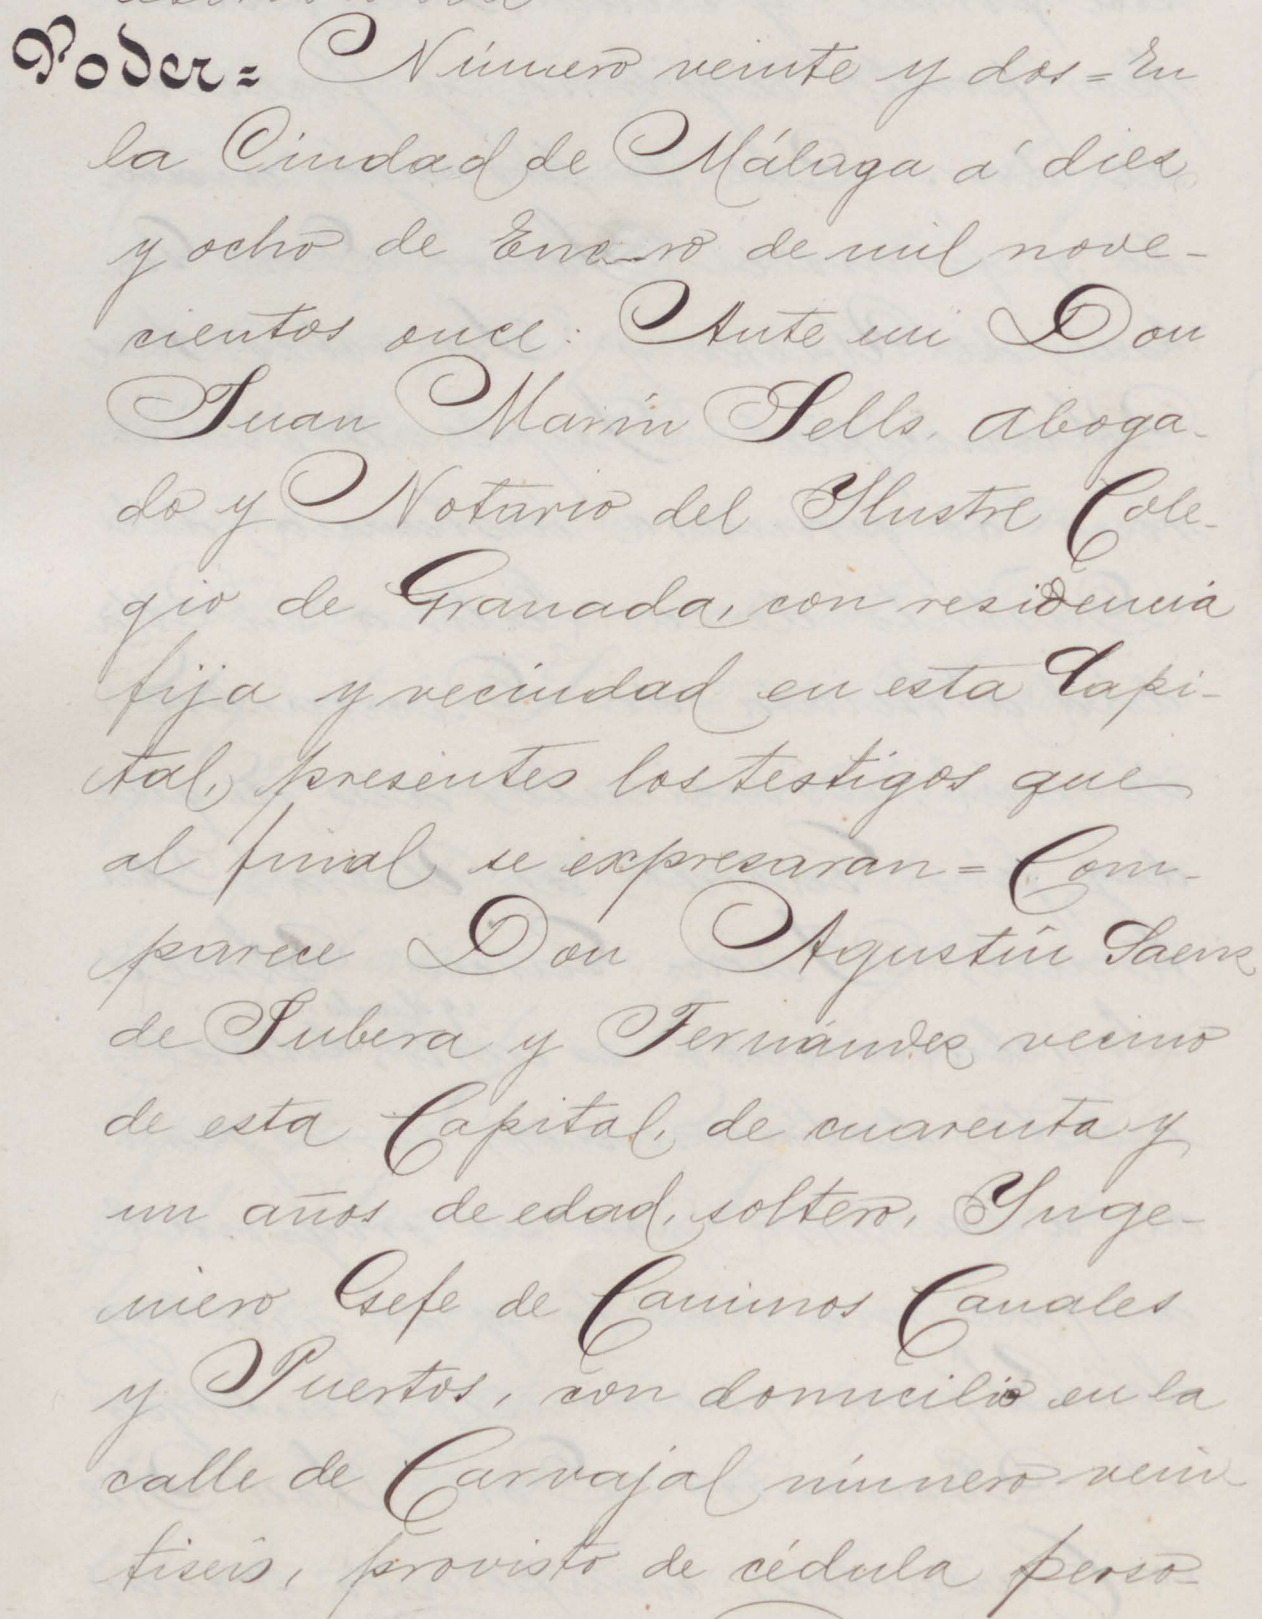 Poder = Número veinte y dos = En
la Ciudad de Málaga á diez
y ocho de Enero de mil nove-
cientos once: Ante mi Don
Juan Marín Sells, Aboga-
do y Notario del Ilustre Cole-
gio de Granada, con residencia
fija y vecindad en esta Capi-
tal, presentes los testigos que
al final se expresaran = Com-
parece Don Agustín Saenz
de Jubera y Fernández vecino
de esta Capital, de cuarenta y
un años de edad, soltero, Inge-
niero Gefe de Caminos Canales
y Puertos, con domicilio en la
calle de Carvajal número vein
tiseis, provisto de cédula perso-